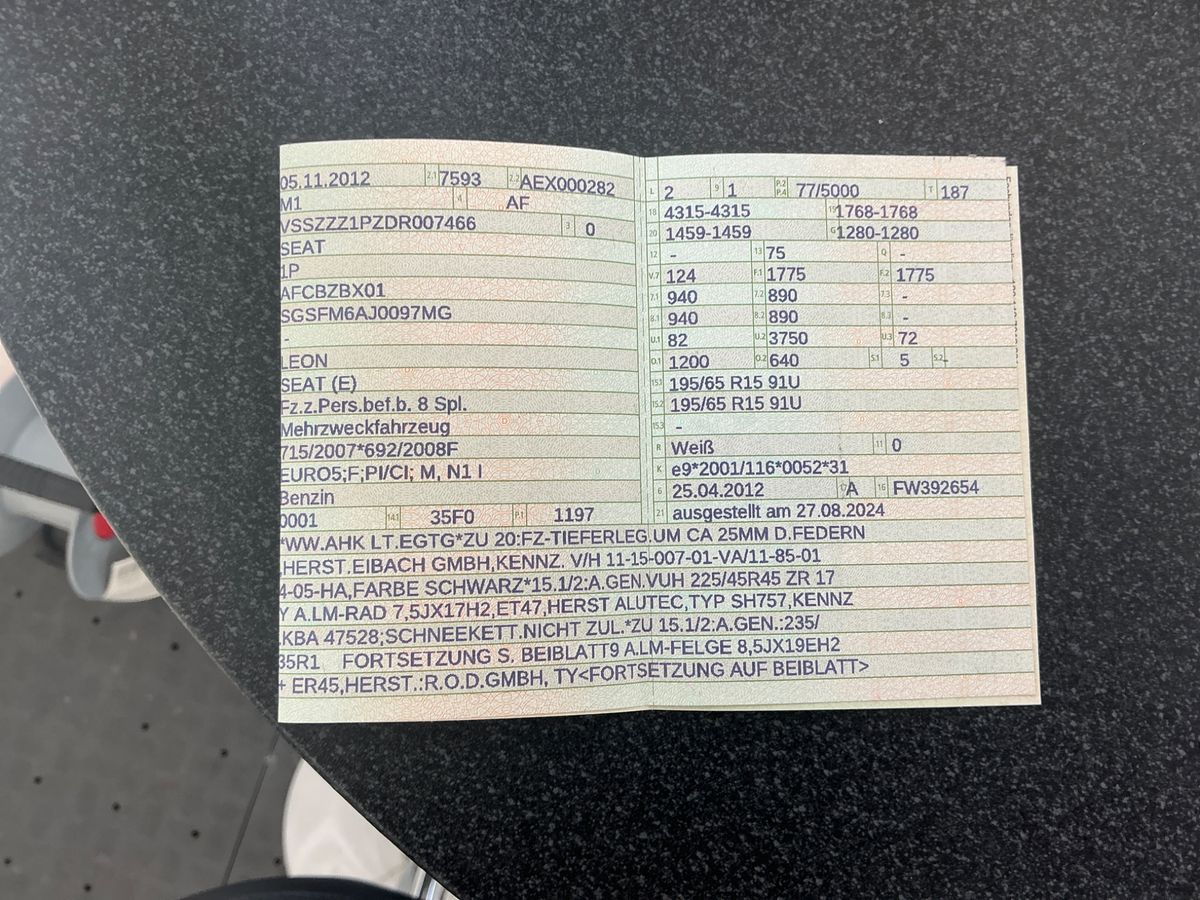 05.11.2012 2.1 7593 2.2 AEX000282
M1 4 AF
VSSZZZ1PZDR007466 3 0
SEAT
1P
AFCBZBX01
SGSFM6AJ0097MG
-
LEON
SEAT (E)
Fz.z.Pers.bef.b. 8 Spl.
Mehrzweckfahrzeug
715/2007*692/2008F
EURO5;F;PI/CI; M, N1 I
Benzin
0001 14.1 35F0 P.1 1197
L 2 9 1 P.2 P.4 77/5000 T 187
18 4315-4315 19 1768-1768
20 1459-1459 G 1280-1280
12 - 13 75 Q -
V.7 124 F.1 1775 F.2 1775
7.1 940 7.2 890 7.3 -
8.1 940 8.2 890 8.3 -
U.1 82 U.2 3750 U.3 72
O.1 1200 O.2 640 S.1 5 S.2 -
15.1 195/65 R15 91U
15.2 195/65 R15 91U
15.3 -
R Weiß 11 0
K e9*2001/116*0052*31
6 25.04.2012 17 A 16 FW392654
21 ausgestellt am 27.08.2024
*WW.AHK LT.EGTG*ZU 20:FZ-TIEFERLEG.UM CA 25MM D.FEDERN
.HERST.EIBACH GMBH,KENNZ. V/H 11-15-007-01-VA/11-85-01
4-05-HA,FARBE SCHWARZ*15.1/2:A.GEN.VUH 225/45R45 ZR 17
Y A.LM-RAD 7,5JX17H2,ET47,HERST ALUTEC,TYP SH757,KENNZ
.KBA 47528;SCHNEEKETT.NICHT ZUL.*ZU 15.1/2:A.GEN.:235/
35R1 FORTSETZUNG S. BEIBLATT9 A.LM-FELGE 8,5JX19EH2
+ ER45,HERST.:R.O.D.GMBH, TY<FORTSETZUNG AUF BEIBLATT>